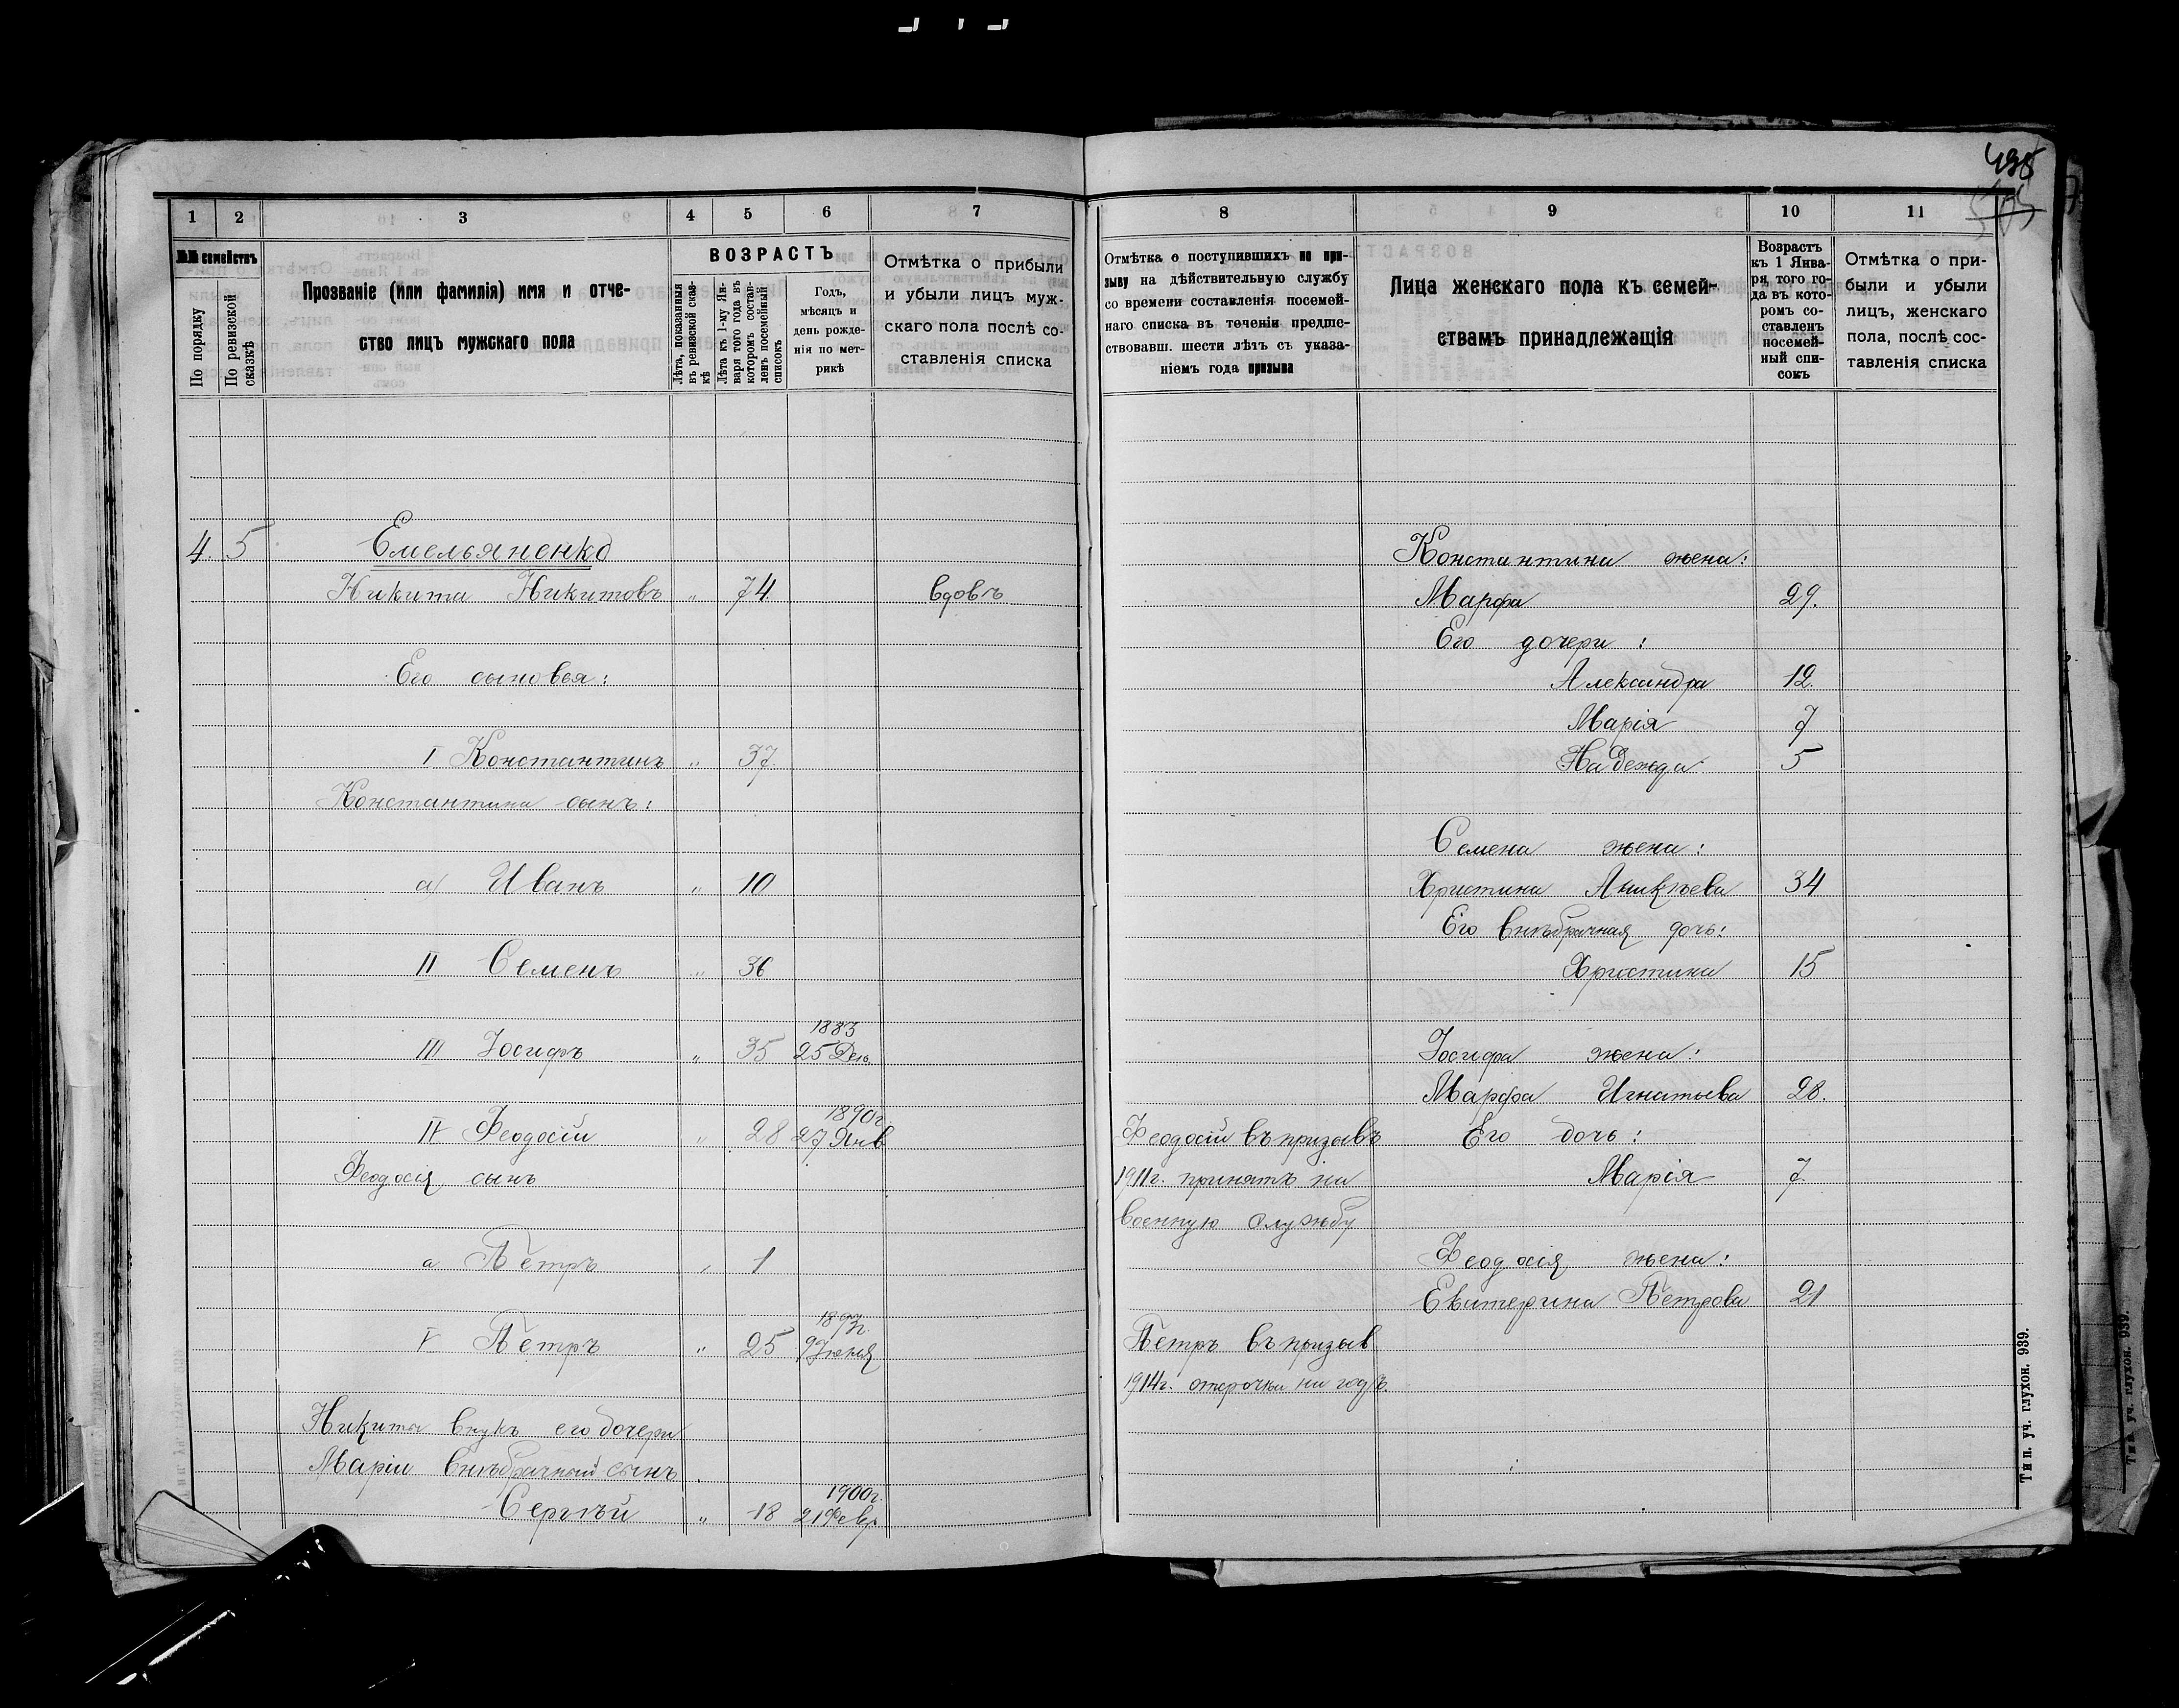 495
505
1 2 3 4 5 6 7
№№ семействъ
По порядку
По ревизской сказкѣ
Прозваніе (или фамилія) имя и отче-
ство лицъ мужскаго пола
ВОЗРАСТЪ
Лѣта, показанныя въ ревизской сказ-кѣ
Лѣта къ 1-му Ян-варя того года въ которомъ состав-ленъ посемейный списокъ
Годъ,
мѣсяцъ и
день рожде-
нія по мет-
рикѣ
Отмѣтка о прибыли
и убыли лицъ муж-
скаго пола послѣ со-
ставленія списка
4. 5 Емельяненко
Никита Никитовъ „ 74 вдовъ
Его сыновья:
I Константинъ „ 37.
Константина сынъ:
а) Иванъ „ 10
II Семенъ „ 36
1883
III Іосифъ „ 35 25 Дек.
1890г.
IV Феодосій „ 28 27 Янв
Феодосія сынъ
а Петръ „ 1
1893г.
V Петръ „ 25 9 Іюня
Никита внукъ его дочери
Маріи внѣбрачный сынъ
1900г.
Сергѣй „ 18 21 Февр
8 9 10 11
Отмѣтка о поступившихъ по при-
зыву на дѣйствительную службу
со времени составленія посемей-
наго списка въ теченіи предше-
ствовавш. шести лѣтъ съ указа-
ніемъ года призыва
Лица женскаго пола къ семей-
ствамъ принадлежащія
Возрастъ
къ 1 Янва-
ря того го-
да въ кото-
ромъ со-
ставленъ
посемей-
ный спи-
сокъ
Отмѣтка о при-
были и убыли
лицъ, женскаго
пола, послѣ сос-
тавленія списка
Константина жена:
Марфа 29.
Его дочери:
Александра 12.
Марія 7
Надежда 5
Семена жена:
Христина Аникѣева 34
Его внѣбрачная дочь:
Христина 15
Іосифа жена:
Марфа Игнатьева 28.
Феодосій въ призывъ Его дочь:
1911г. принятъ на Марія 7.
военную службу
Феодосія жена:
Екатерина Петрова 21
Петръ въ призыв
1914г. отсрочка на годъ.
Тип. уч. глухон. 939.
Тип. уч. глухон. 939.